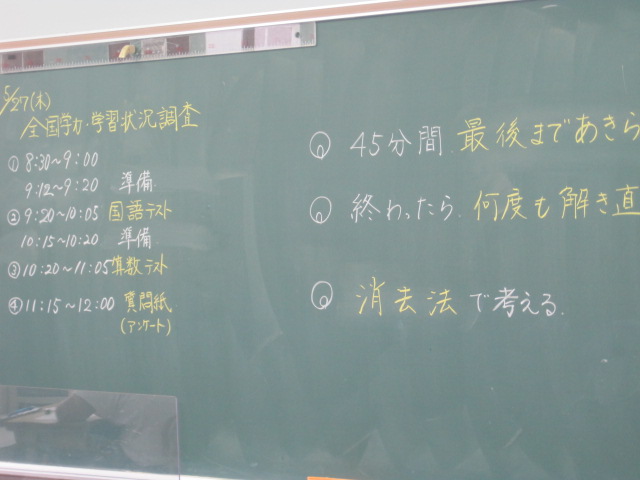 5/27(木)
全国学力・学習状況調査
① 8:30～9:00
9:12～9:20 準備
② 9:20～10:05 国語テスト
10:15～10:20 準備
③ 10:20～11:05 算数テスト
④ 11:15～12:00 質問紙
(アンケート)
45分間、最後まであきら
終わったら、何度も解き直
消去法で考える。